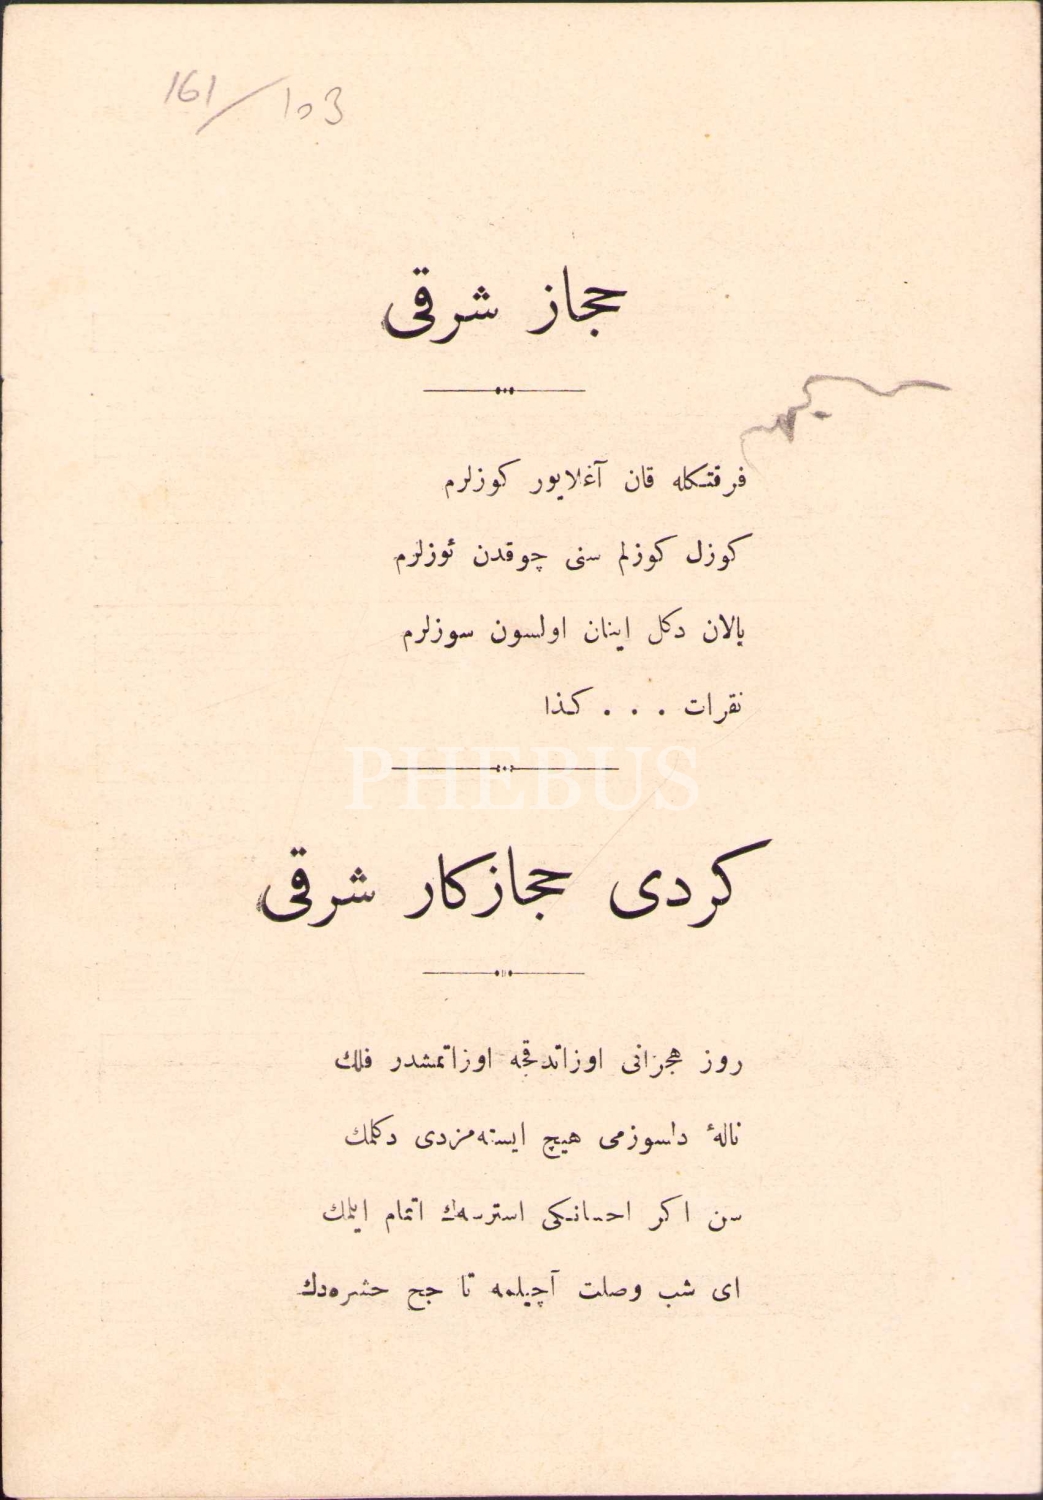 161/103
حجاز شرقی
فرقتكله قان آغلایور كوزلرم
كوزل كوزلم سنی چوقدن ئوزلرم
یالان دكل اینان اولسون سوزلرم
نقرات . . . كذا
PHEBUS
كردی حجازكار شرقی
روز هجرانی اوزاتدقجه اوزاتمشدر فلك
نالهٔ دلسوزمی هیچ ایسته‌مزدی دكلمك
سن اكر احسانكی استرسه‌ك اتمام ایلمك
ای شب وصلت آچیلمه تا حشره‌دك